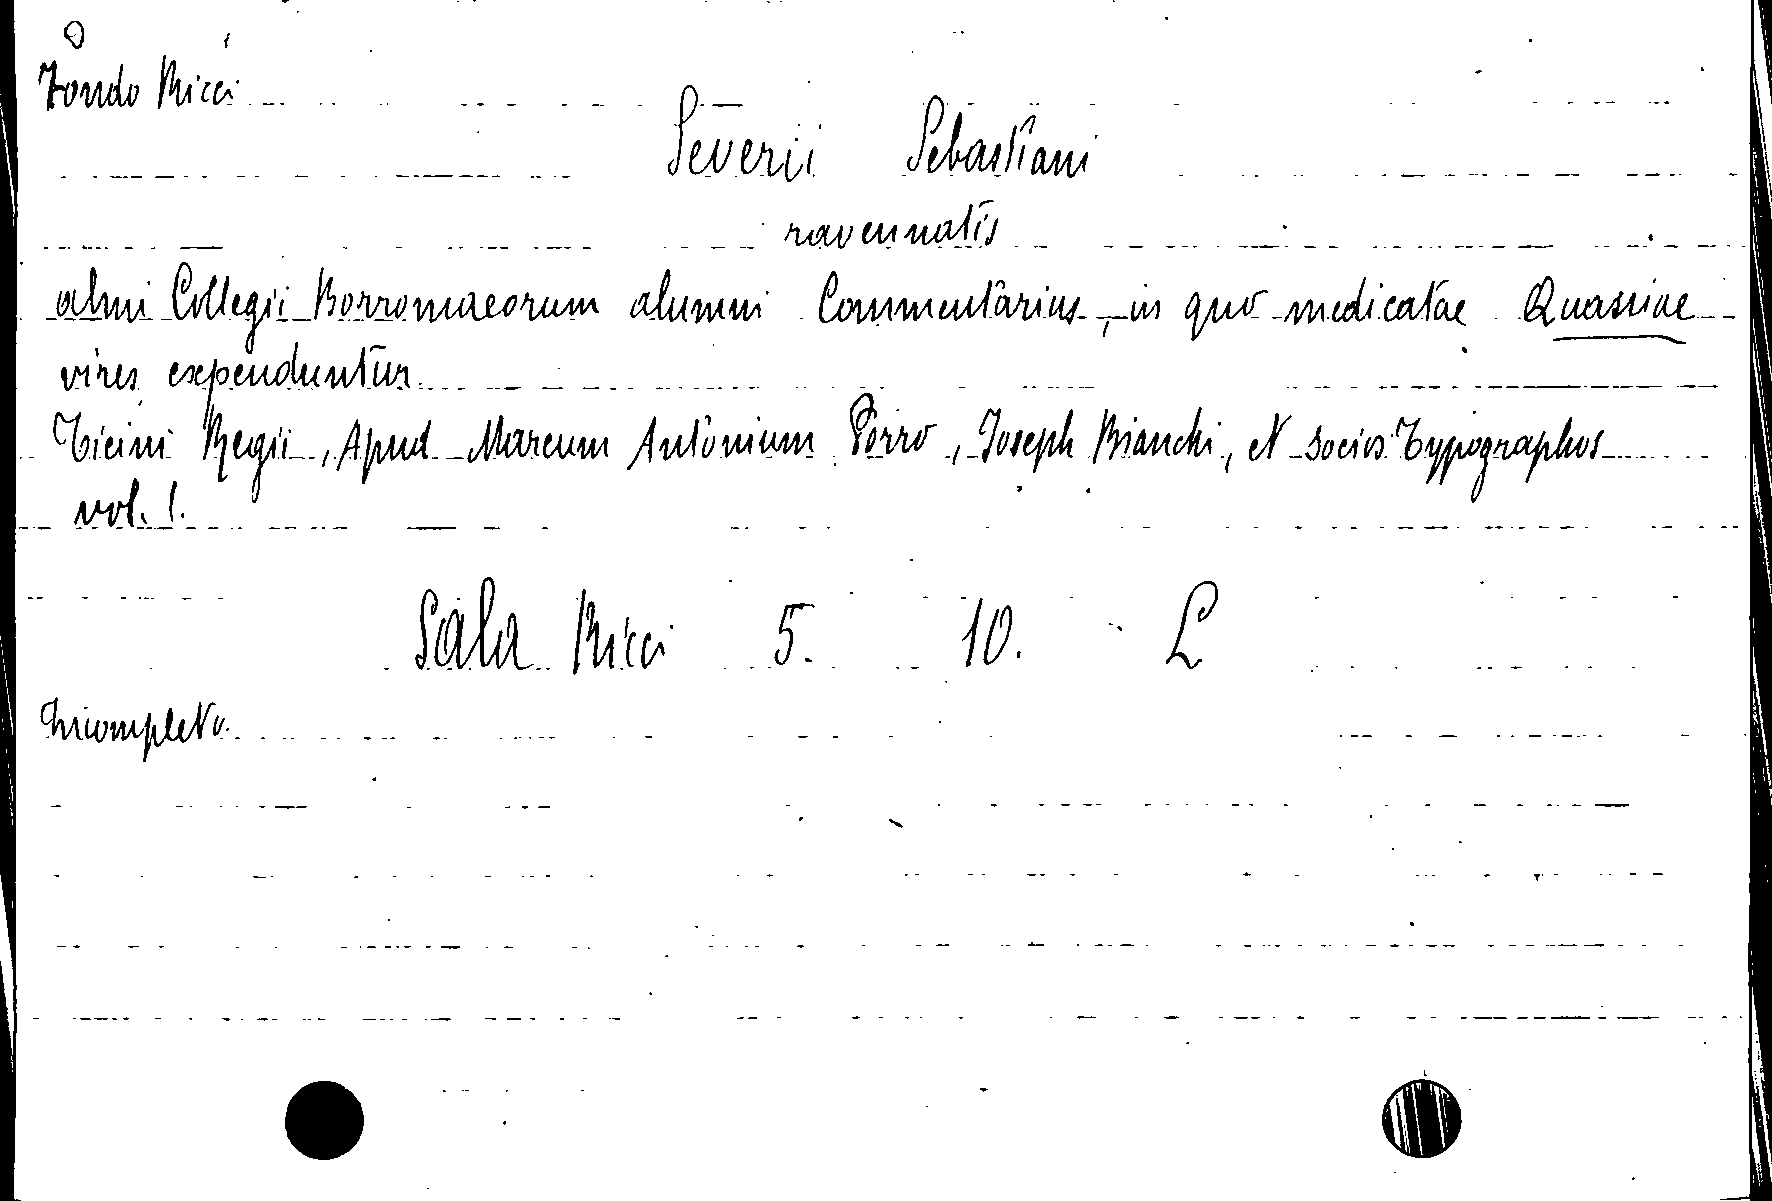 Fondo Ricci
Severii Sebastiani
ravennatis
almi Collegii Borromaeorum alumni Commentarius, in quo medicatae Quassiae
vires expenduntur
Ticini Regii, Apud Marcum Antonium Porro, Joseph Bianchi, et socios Typographos
vol. 1.
Sala Ricci 5. 10. L
Incompleto.